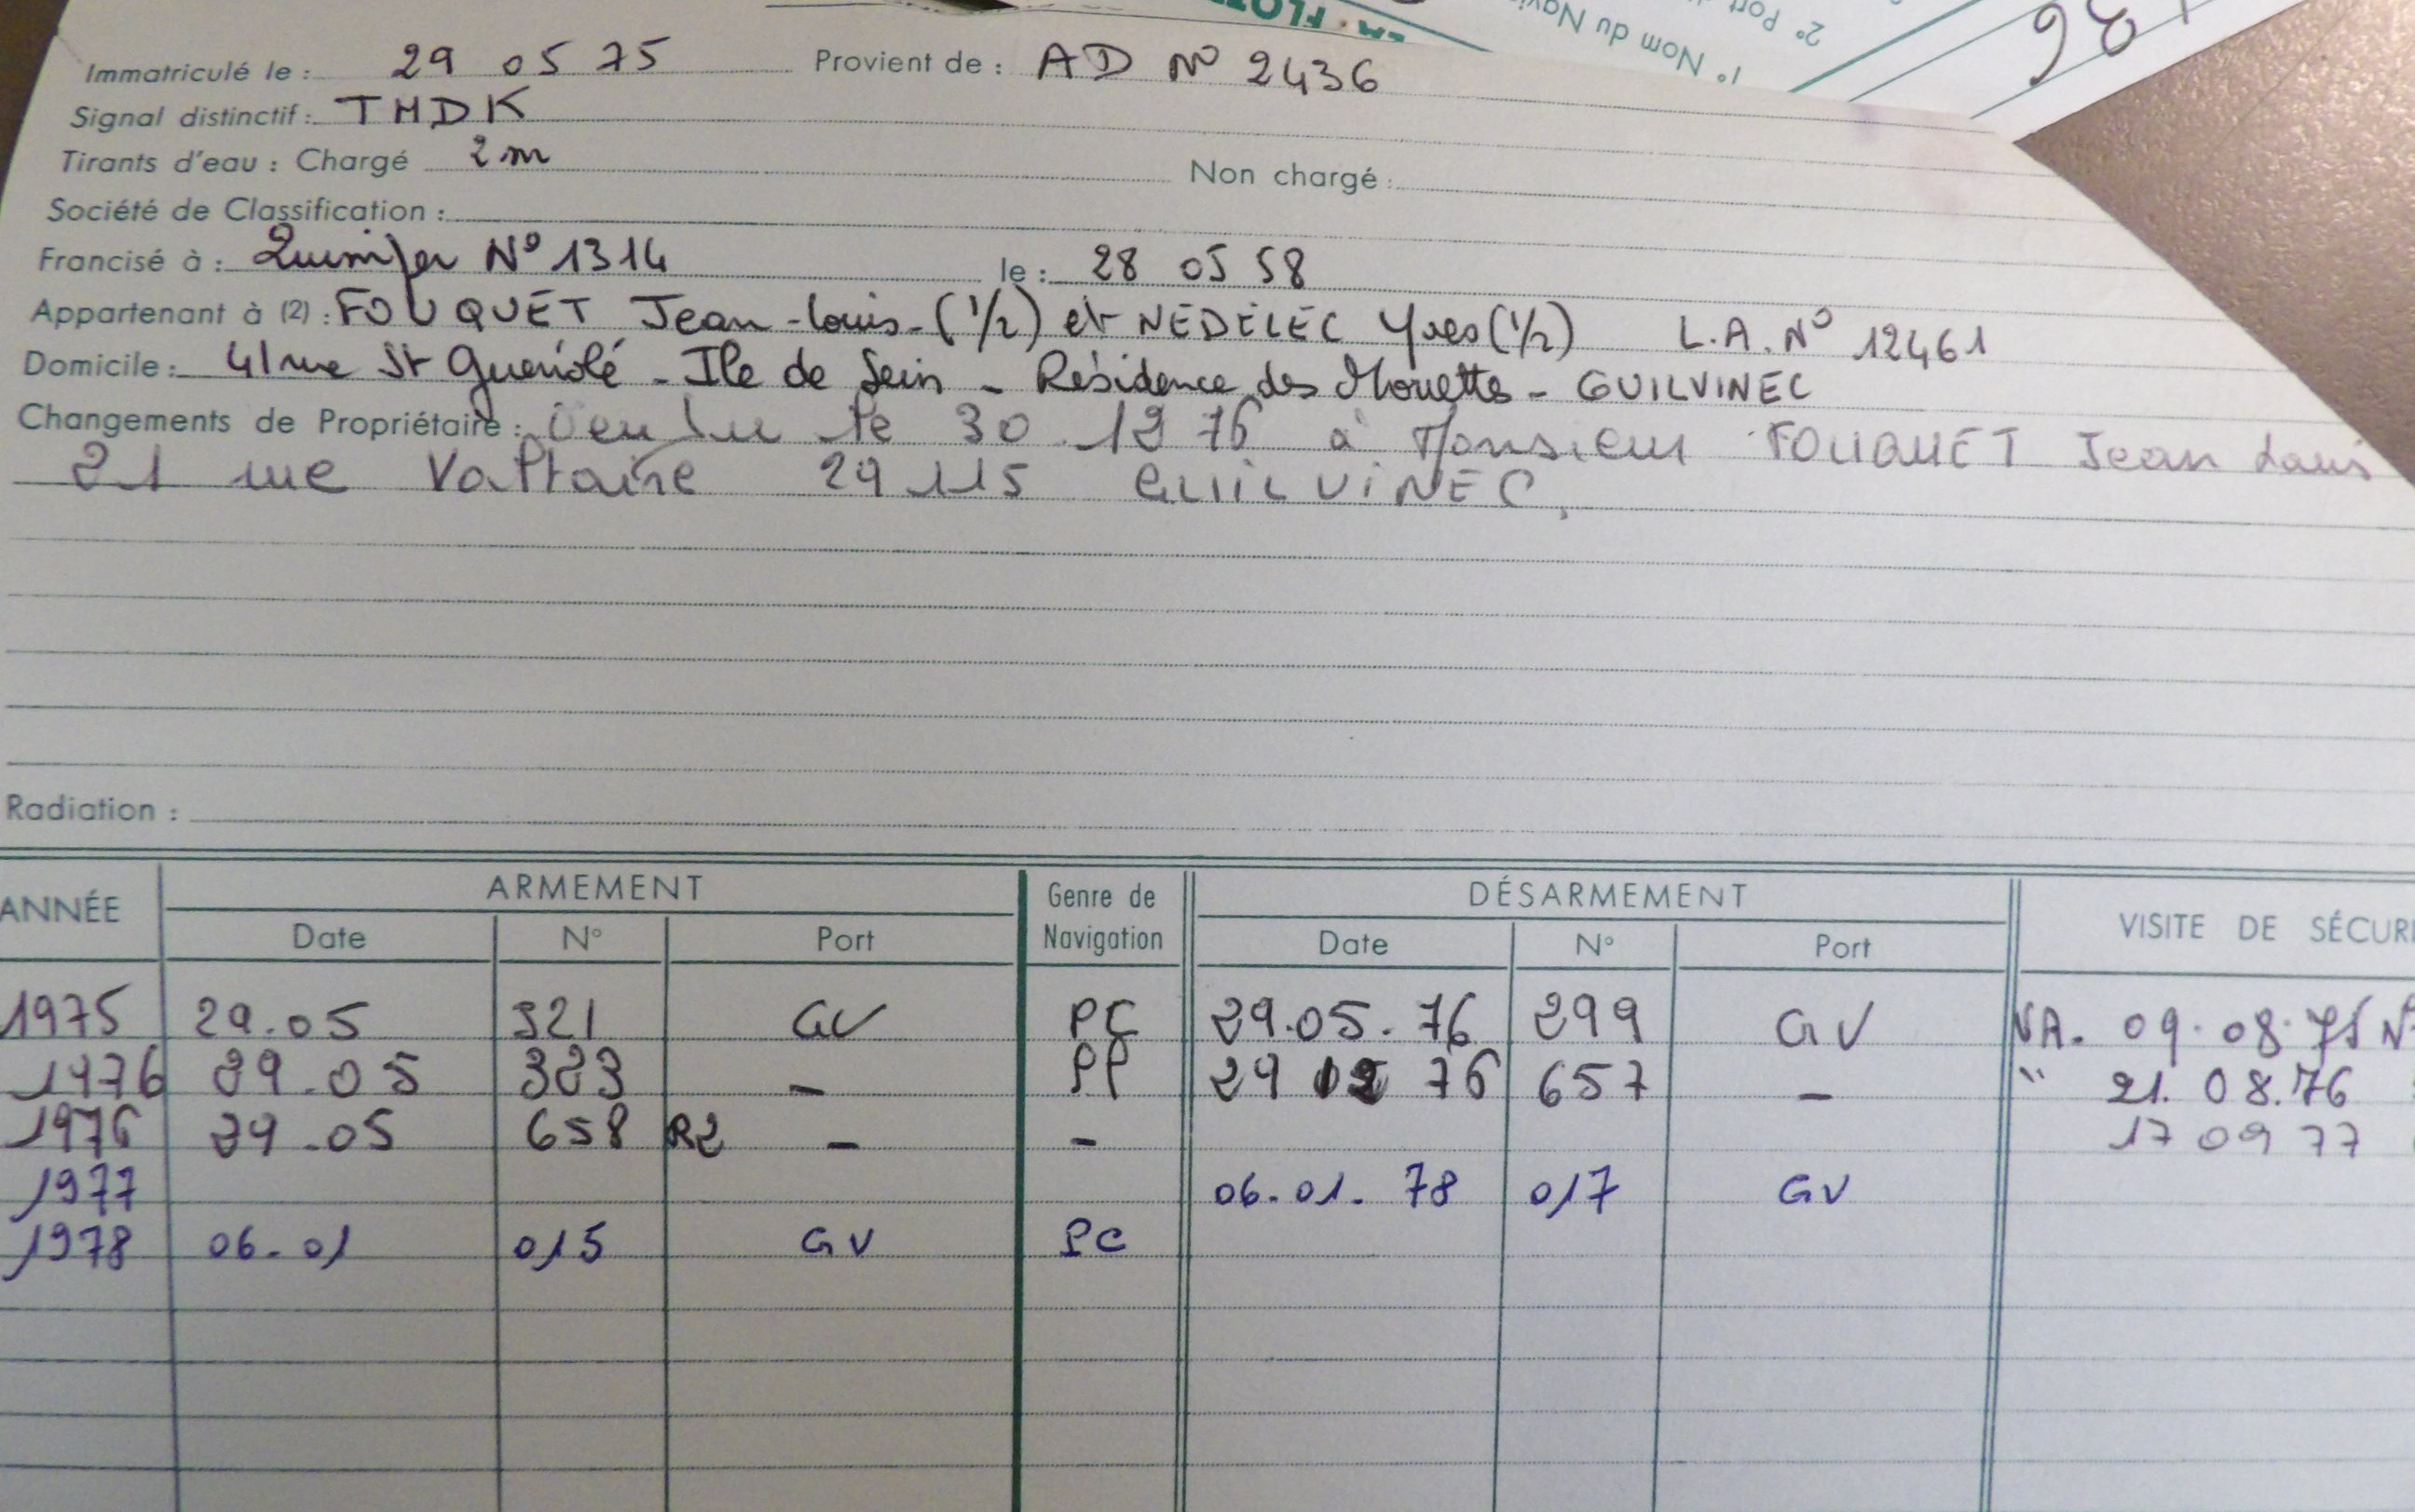 LA FLOT
1° Nom du Navi
2° Port d
26
Immatriculé le : 29 05 75 Provient de : AD N° 2436
Signal distinctif : TMDK
Tirants d'eau : Chargé 2m Non chargé :
Société de Classification :
Francisé à : Quimper N° 1314 le : 28 05 58
Appartenant à (2) : FOUQUET Jean-Louis-(1/2) et NEDELEC Yves (1/2) L.A. N° 12461
Domicile : 41 rue St Guénolé - Ile de Sein - Résidence des Mouettes - GUILVINEC
Changements de Propriétaire : Vendu le 30 12 76 à Monsieur FOUQUET Jean Louis
21 rue Voltaire 29115 GUILVINEC
Radiation :
ANNÉE ARMEMENT Genre de Navigation DÉSARMEMENT VISITE DE SÉCURI
Date N° Port Date N° Port
1975 29.05 321 GV PC 29.05.76 299 GV VA. 09.08.75 N°
1976 29.05 323 - PP 29 12 76 657 - " 21.08.76
1976 29.05 658 R2 - - 17 09 77
1977 06.01.78 017 GV
1978 06.01 015 GV PC